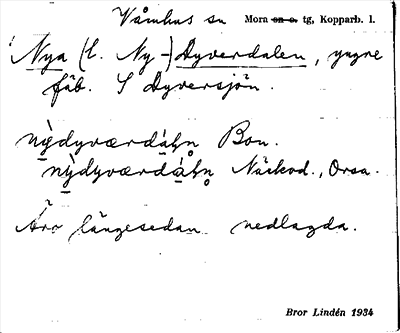 Våmhus sn Mora sn o. tg, Kopparb. l.
Nya (l. Ny-) Dyverdalen, yngre
fäb. S Dyversjön.
nỳdyværdáḷn̥ Bon.
nỳdyværdáḷn̥ Näckod., Orsa.
Äro längesedan nedlagda.
Bror Lindén 1934